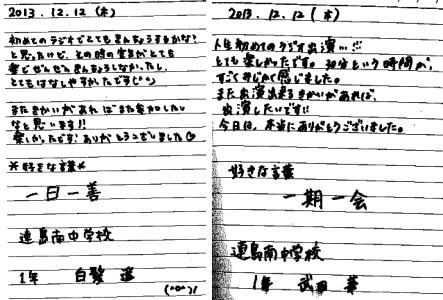 2013.12.12 (木)
初めてのラジオでとてもきんちょうするかな?
と思ったけど、その時の空気がとても
楽でぜんぜんきんちょうしなかったし、
とてもはなしやすかったです(^^)
またきかいがあればまた参加したい
なと思います!!
楽しかったです!ありがとうございました
*好きな言葉*
一日一善
連島南中学校
1年 白髪
(^o^)!
2013.12.12 (木)
人生初めてのラジオ出演...!!
とても楽しかったです。30分という時間が、
すごくみじかく感じました。
また出演出来るきかいがあれば、
出演したいです!!
今日は、本当にありがとうございました。
好きな言葉
一期一会
連島南中学校
1年 武田